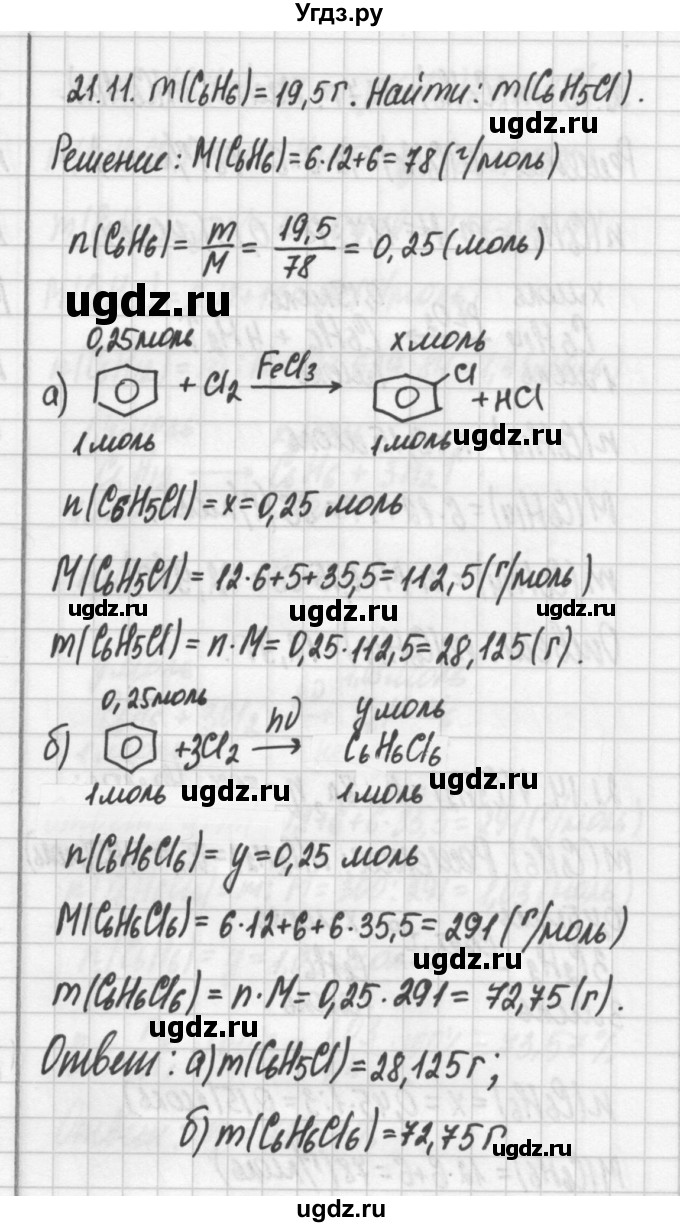 Угдз.ру
21.11. m(C6H6)=19,5г. Найти: m(C6H5Cl).
ugdz.ru
Решение: M(C6H6)=6·12+6=78(г/моль)
n(C6H6)= m/M = 19,5/78 = 0,25(моль)
ugdz.ru
0,25моль xмоль
а) + Cl2 FeCl3 → Cl +HCl
1моль 1моль ugdz.ru
n(C6H5Cl)=x=0,25 моль
M(C6H5Cl)=12·6+5+35,5=112,5(г/моль)
ugdz.ru ugdz.ru ugdz.ru
m(C6H5Cl)=n·M=0,25·112,5=28,125(г).
0,25моль yмоль
б) +3Cl2 hν → C6H6Cl6
ugdz.ru
1моль ugdz.ru 1моль
n(C6H6Cl6)=y=0,25 моль
M(C6H6Cl6)=6·12+6+6·35,5=291(г/моль)
ugdz.ru
m(C6H6Cl6)=n·M=0,25·291=72,75(г).
ugdz.ru
Ответ: а)m(C6H5Cl)=28,125г;
б)m(C6H6Cl6)=72,75г
ugdz.ru
ugdz.ru